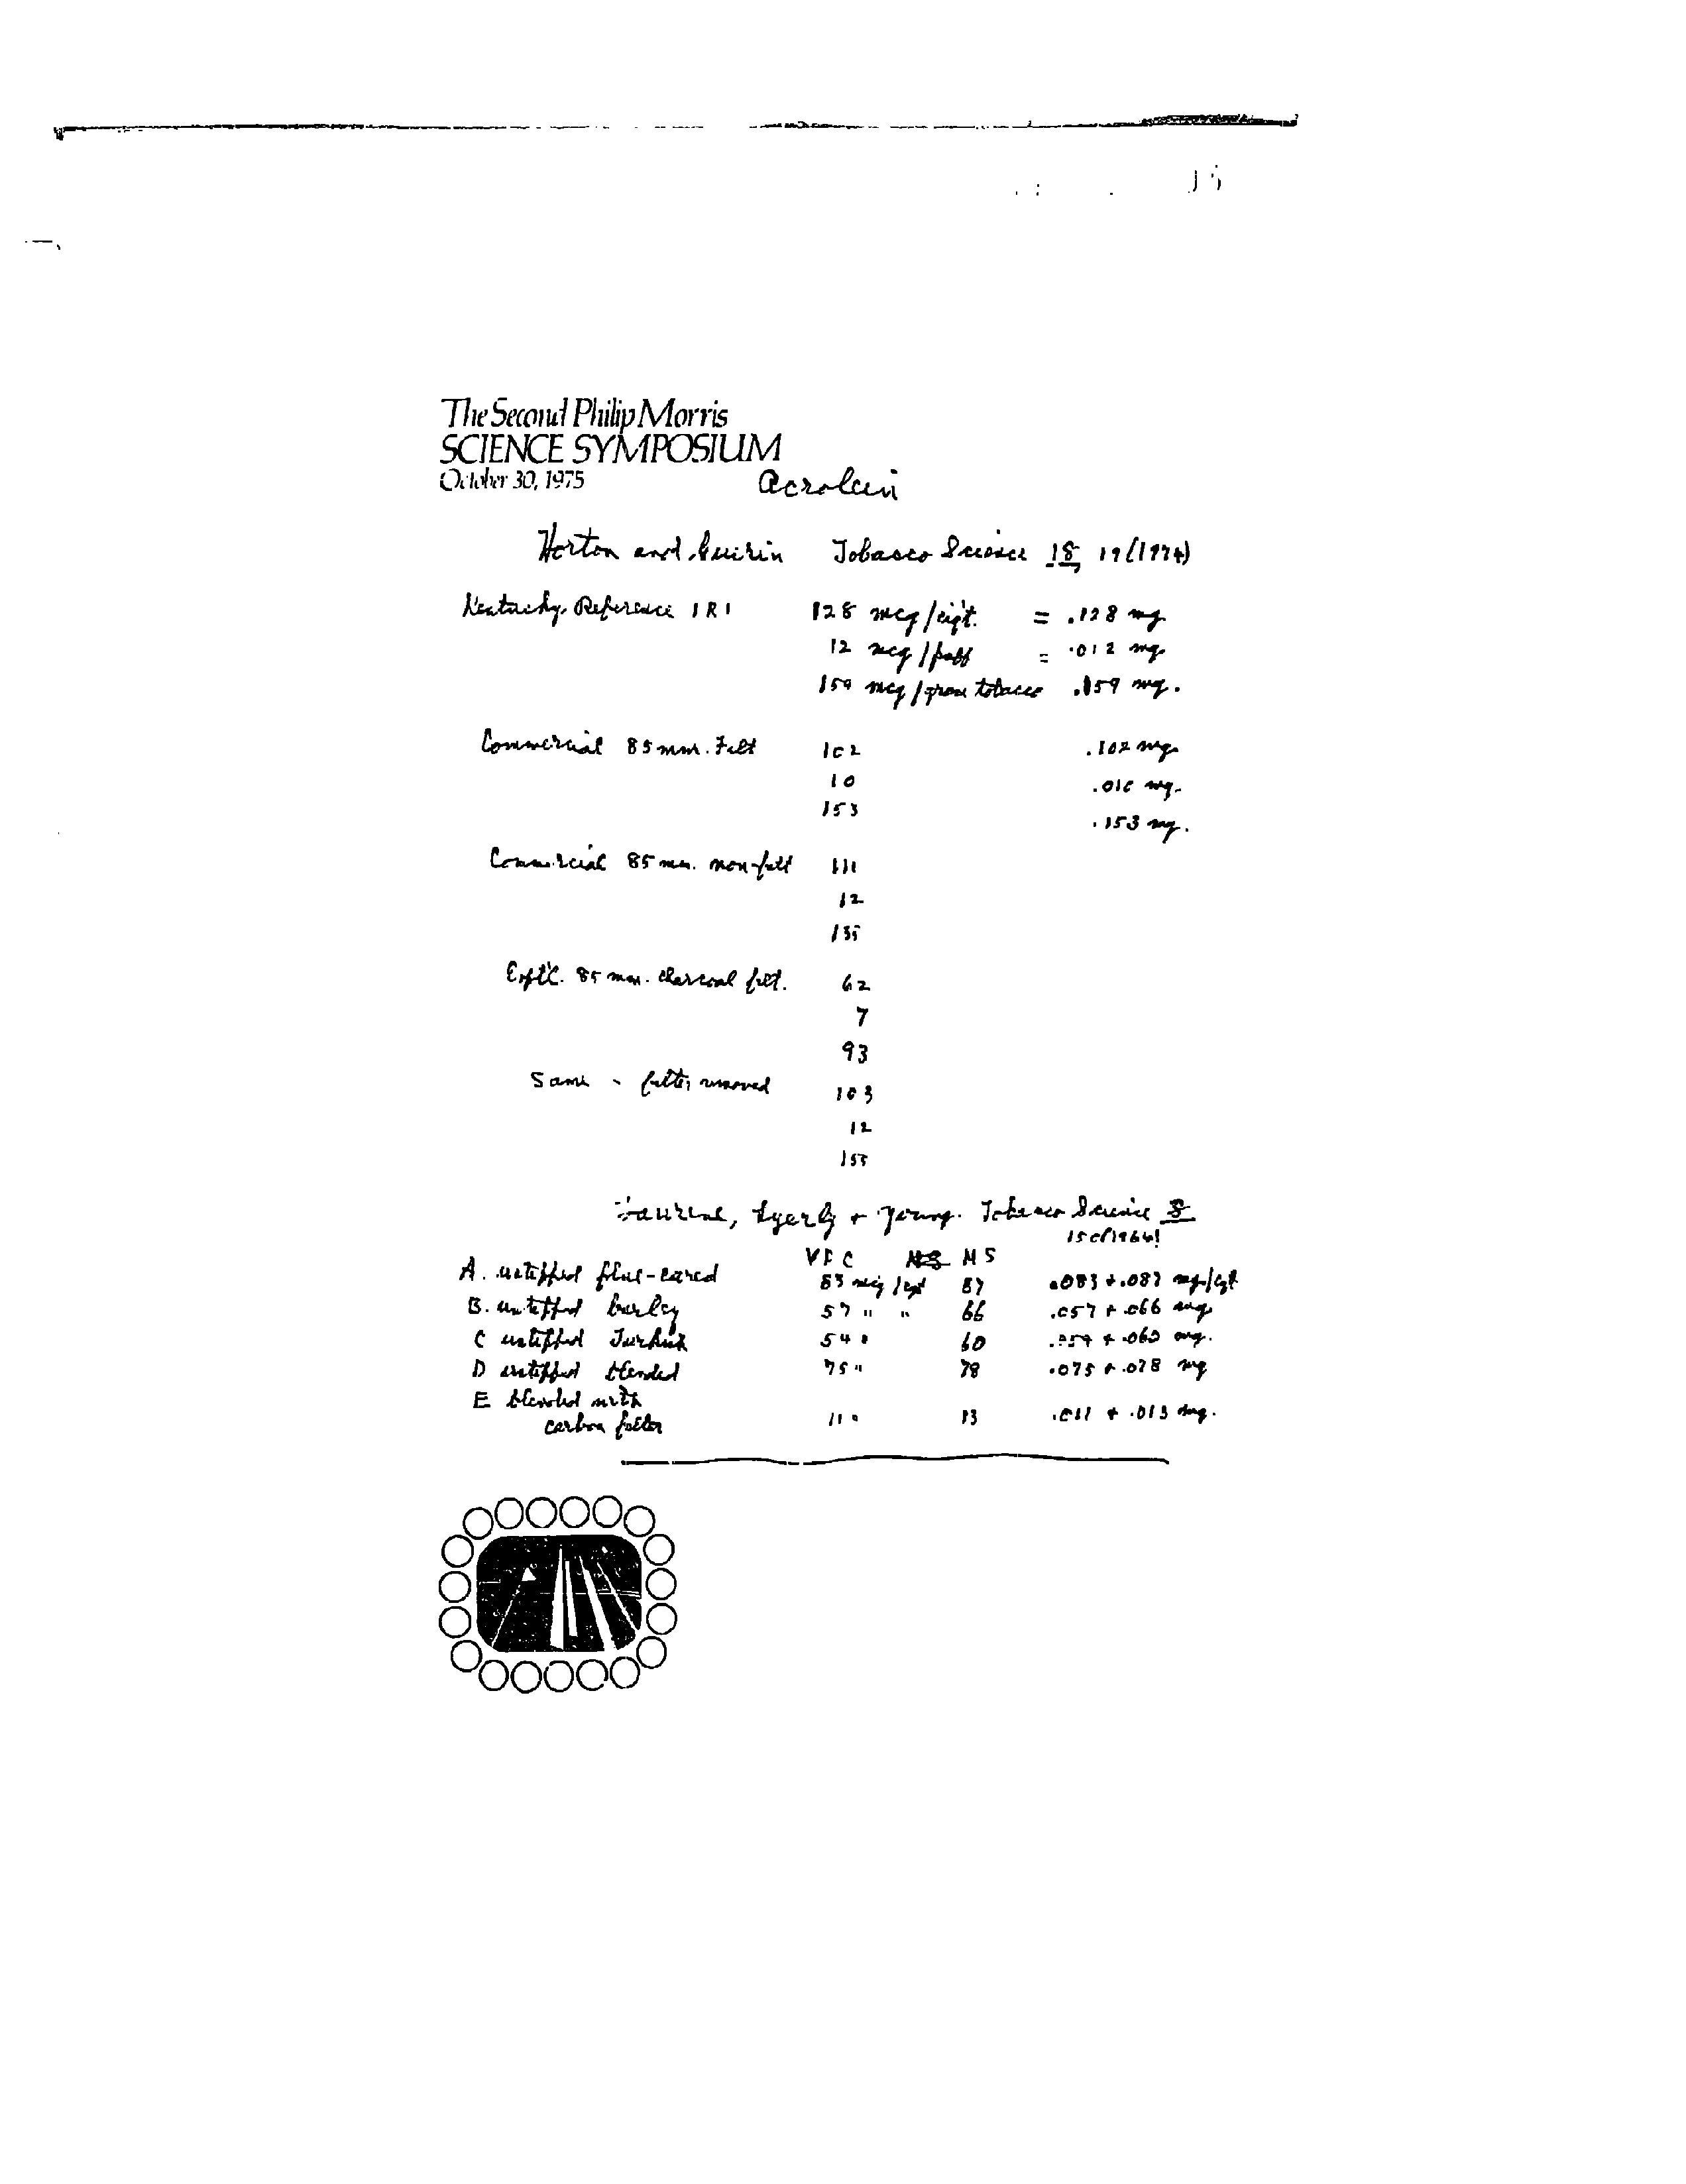 The Second Philip Morris
SCIENCE SYMPOSIUM
October 30, 1975
Acrolein
Horton and Guerin Tobacco Science 18, 19 (1974)
Kentucky Reference 1R1 128 mcg/cigt. = .128 mg
12 mcg/puff = .012 mg.
159 mcg/gram tobacco .159 mg.
Commercial 85 mm. Filt 102 .102 mg.
10 .010 mg.
153 .153 mg.
Commercial 85 mm. non-filt 111
12
135
Expt'l. 85 mm. charcoal filt. 62
7
93
Same - filter removed 103
12
155
Laurene, Lyerly + Young. Tobacco Science 8
150 (1964)
VPC MS
A. untipped flue-cured 83 mcg/cigt 87 .083 + .087 mg/cgt
B. untipped burley 57 " " 66 .057 + .066 mg
C untipped Turkish 54 " 60 .054 + .060 mg.
D untipped blended 75 " 78 .075 + .078 mg
E blended with
carbon filter 11 " 13 .011 + .013 mg.